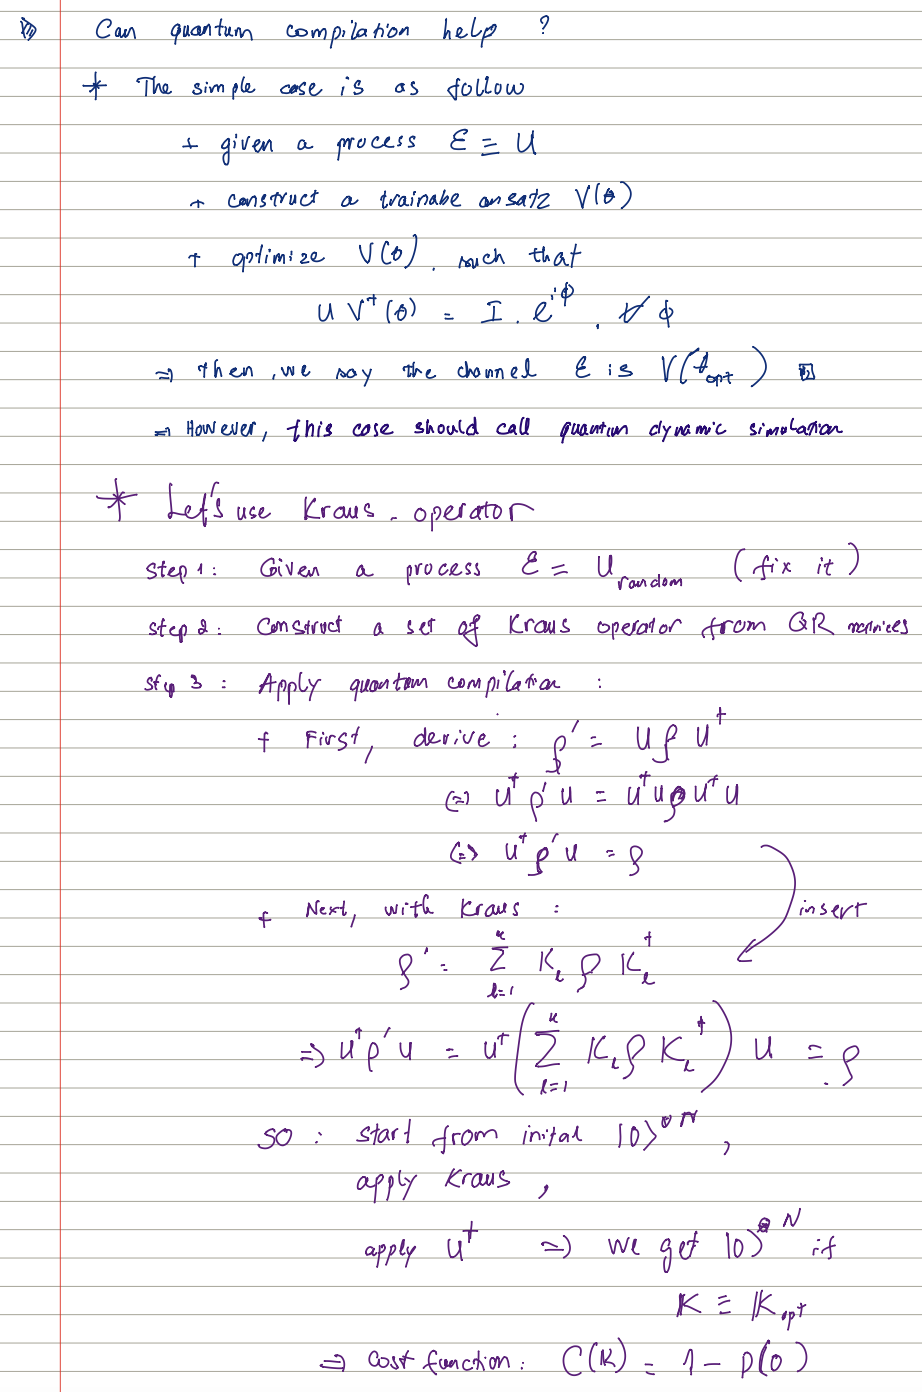 Can quantum compilation help ?
* The simple case is as follow
+ given a process ℰ ≡ U
+ construct a trainabe ansatz V(θ)
+ optimize V(θ), such that
U V†(θ) = I . e^{iϕ}, ∀ ϕ
⇒ then, we say the channel ℰ is V(θ_opt)
⇒ However, this case should call quantum dynamic simulation
* Let's use Kraus - operator
step 1: Given a process ℰ = U_random (fix it)
step 2: Construct a set of Kraus operator from QR matrices
step 3 : Apply quantum compilation :
+ First, derive : ρ' = U ρ U†
(=) U† ρ' U = U† U ρ U† U
(=) U† ρ' U = ρ
+ Next, with Kraus :
insert
ρ' = Σ_{l=1}^{κ} K_l ρ K_l†
⇒ U† ρ' U = U† ( Σ_{l=1}^{κ} K_l ρ K_l† ) U = ρ
SO : start from inital |0⟩^{⊗N} ,
apply Kraus ,
apply U† ⇒ we get |0⟩^{⊗N} if
K ≡ K_opt
⇒ Cost function : C(K) = 1 - p(0)